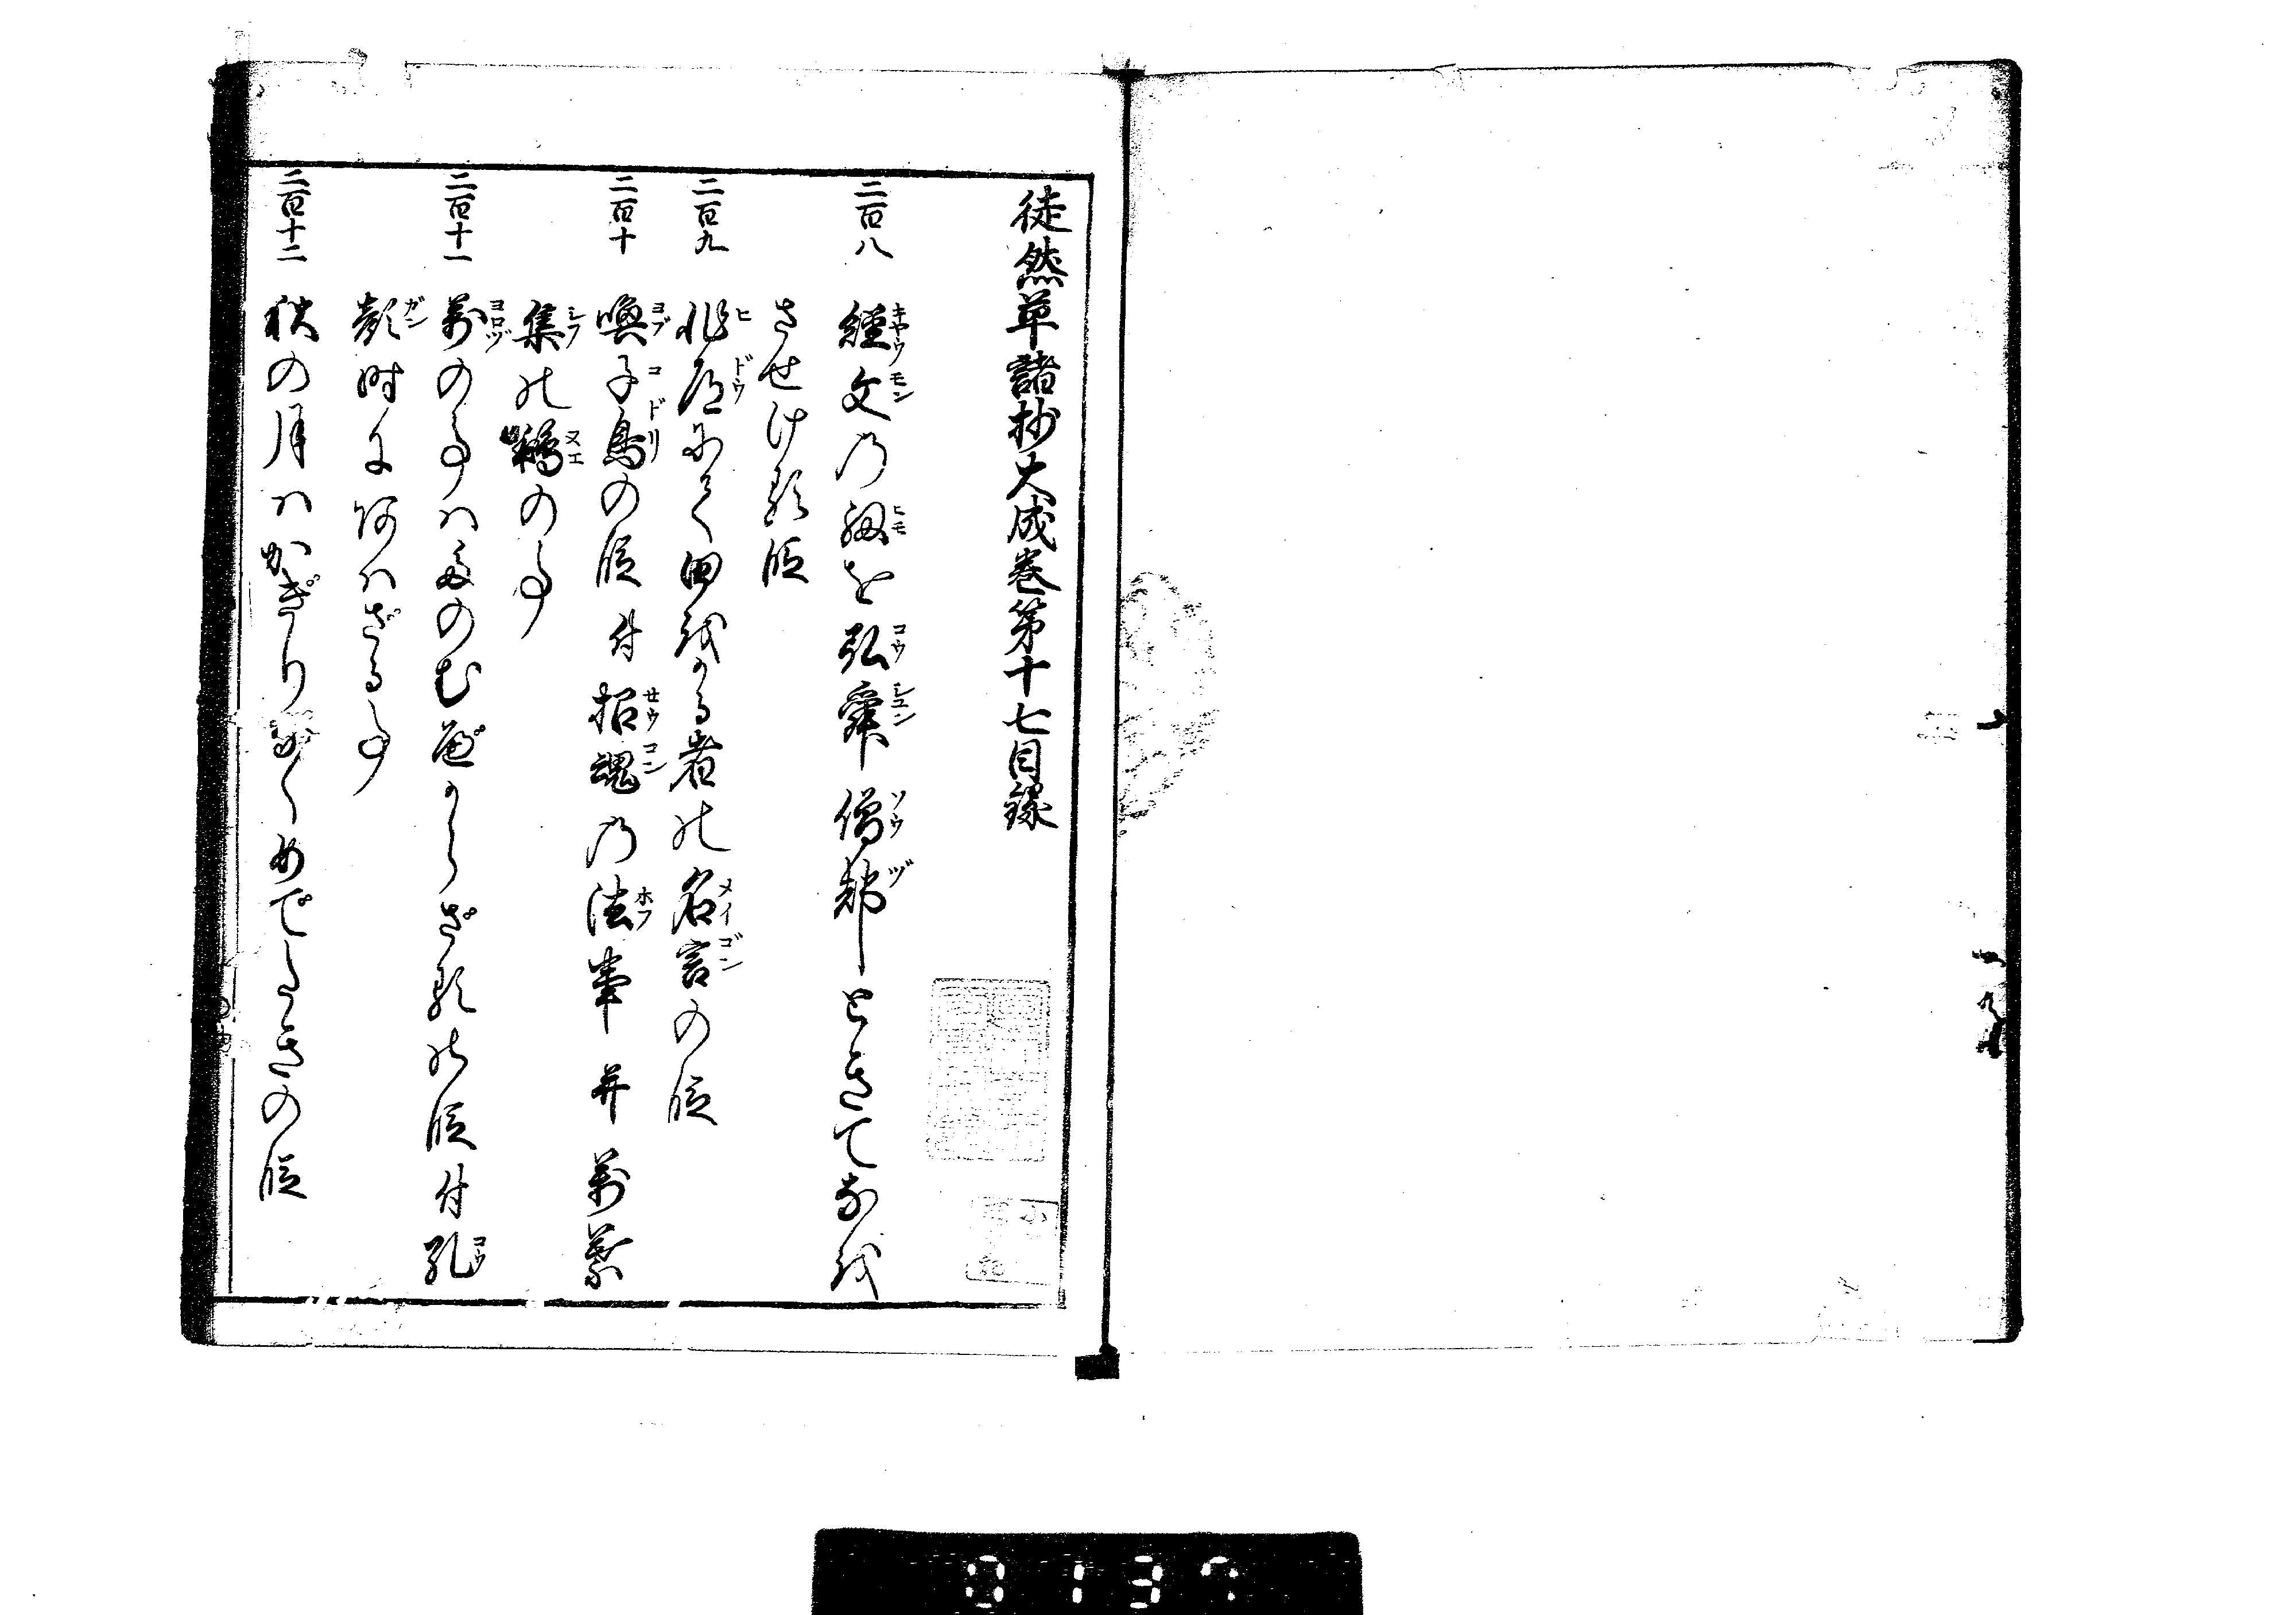 徒然草諸抄大成巻第十七目録
二百八 経文の紐を弘舜僧都ときてなを
させける段
二百九 非道にて田をかる者の名言の段
二百十 喚子鳥の段 付 招魂の法事 并 万葉
集の鵺の事
二百十一 万の事はたのむべからざるの段 付 孔
顔時にあはざる事
二百十二 秋の月はかぎりなくめでたきの段